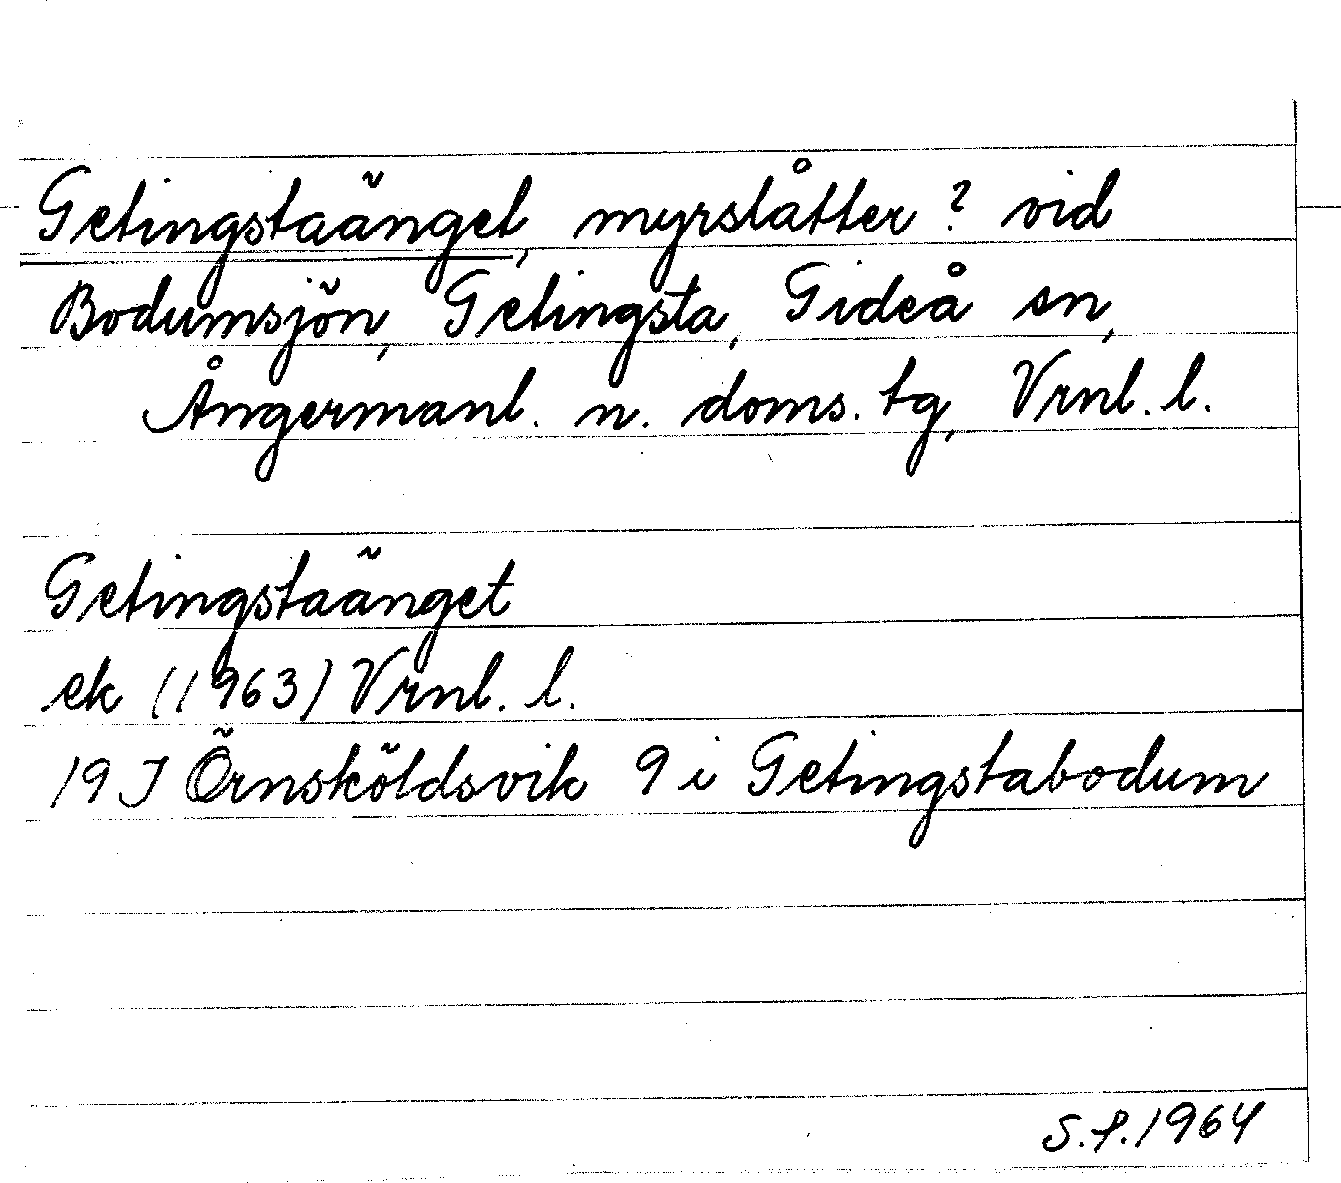 Getingstaänget, myrslåtter? vid
Bodumsjön, Getingsta, Gideå sn,
Ångermanl. n. doms. tg, Vrnl. l.
Getingstaänget
ek (1963) Vrnl. l.
19 J Örnsköldsvik 9 i Getingstabodum
S.P. 1964